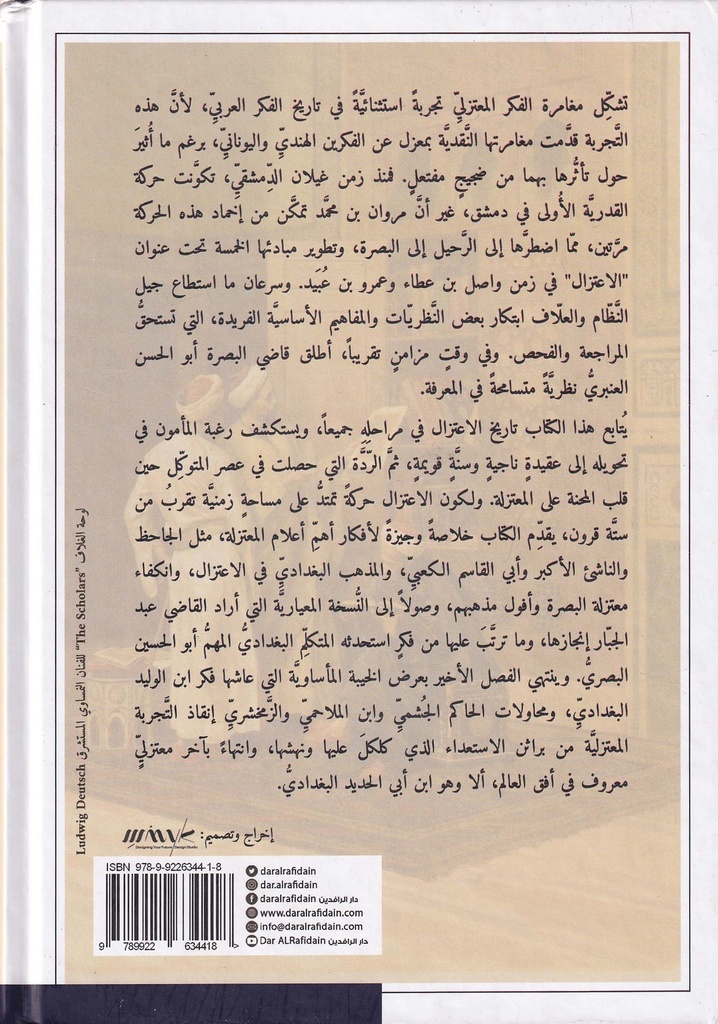 تشكِّل مغامرة الفكر المعتزليِّ تجربةً استثنائيَّةً في تاريخ الفكر العربيِّ، لأنَّ هذه
التَّجربة قدَّمت مغامرتها النَّقديَّة بمعزل عن الفكرين الهنديِّ واليونانيِّ، برغم ما أُثيرَ
حول تأثُّرها بهما من ضجيجٍ مفتعلٍ. فمنذ زمن غيلان الدِّمشقيِّ، تكوَّنت حركة
القدريَّة الأُولى في دمشق، غير أنَّ مروان بن محمَّد تمكَّن من إخماد هذه الحركة
مرَّتين، ممَّا اضطرَّها إلى الرَّحيل إلى البصرة، وتطوير مبادئها الخمسة تحت عنوان
"الاعتزال" في زمن واصل بن عطاء وعمرو بن عُبَيد. وسرعان ما استطاع جيل
النَّظّام والعلّاف ابتكار بعض النَّظريّات والمفاهيم الأساسيَّة الفريدة، التي تستحقُّ
المراجعة والفحص. وفي وقتٍ مزامنٍ تقريباً، أطلق قاضي البصرة أبو الحسن
العنبريُّ نظريَّةً متسامحةً في المعرفة.
يُتابع هذا الكتاب تاريخ الاعتزال في مراحلِهِ جميعاً، ويستكشف رغبة المأمون في
تحويله إلى عقيدةٍ ناجيةٍ وسنَّةٍ قويمةٍ، ثمَّ الرّدَّة التي حصلت في عصر المتوكِّل حين
قلب المحنة على المعتزلة. ولكون الاعتزال حركةً تمتدُّ على مساحةٍ زمنيَّة تقربُ من
ستَّة قرون، يقدِّم الكتاب خلاصةً وجيزةً لأفكار أهمِّ أعلام المعتزلة، مثل الجاحظ
والناشئ الأكبر وأبي القاسم الكعبيِّ، والمذهب البغداديِّ في الاعتزال، وانكفاء
معتزلة البصرة وأفول مذهبهم، وصولاً إلى النُّسخة المعياريَّة التي أراد القاضي عبد
الجبّار إنجازها، وما ترتَّبَ عليها من فكرٍ استحدثه المتكلِّم البغداديُّ المهمُّ أبو الحسين
البصريُّ. وينتهي الفصل الأخير بعرض الخيبة المأساويَّة التي عاشها فكر ابن الوليد
البغداديِّ، ومحاولات الحاكم الجُشميِّ وابن الملاحميِّ والزَّمخشريِّ إنقاذ التَّجربة
المعتزليَّة من براثن الاستعداء الذي كلكلَ عليها ونهشها، وانتهاءً بآخر معتزليٍّ
معروف في أفق العالم، ألا وهو ابن أبي الحديد البغداديُّ.
لوحة الغلاف "The Scholars" للفنان النمساوي المستشرق Ludwig Deutsch
إخراج وتصميم:
Designing Your Future / Design Studio
ISBN 978-9-9226344-1-8
9 789922 634418 >
daralrafidain
dar.alrafidain
daralrafidain دار الرافدين
www.daralrafidain.com
info@daralrafidain.com
Dar ALRafidain دار الرافدين